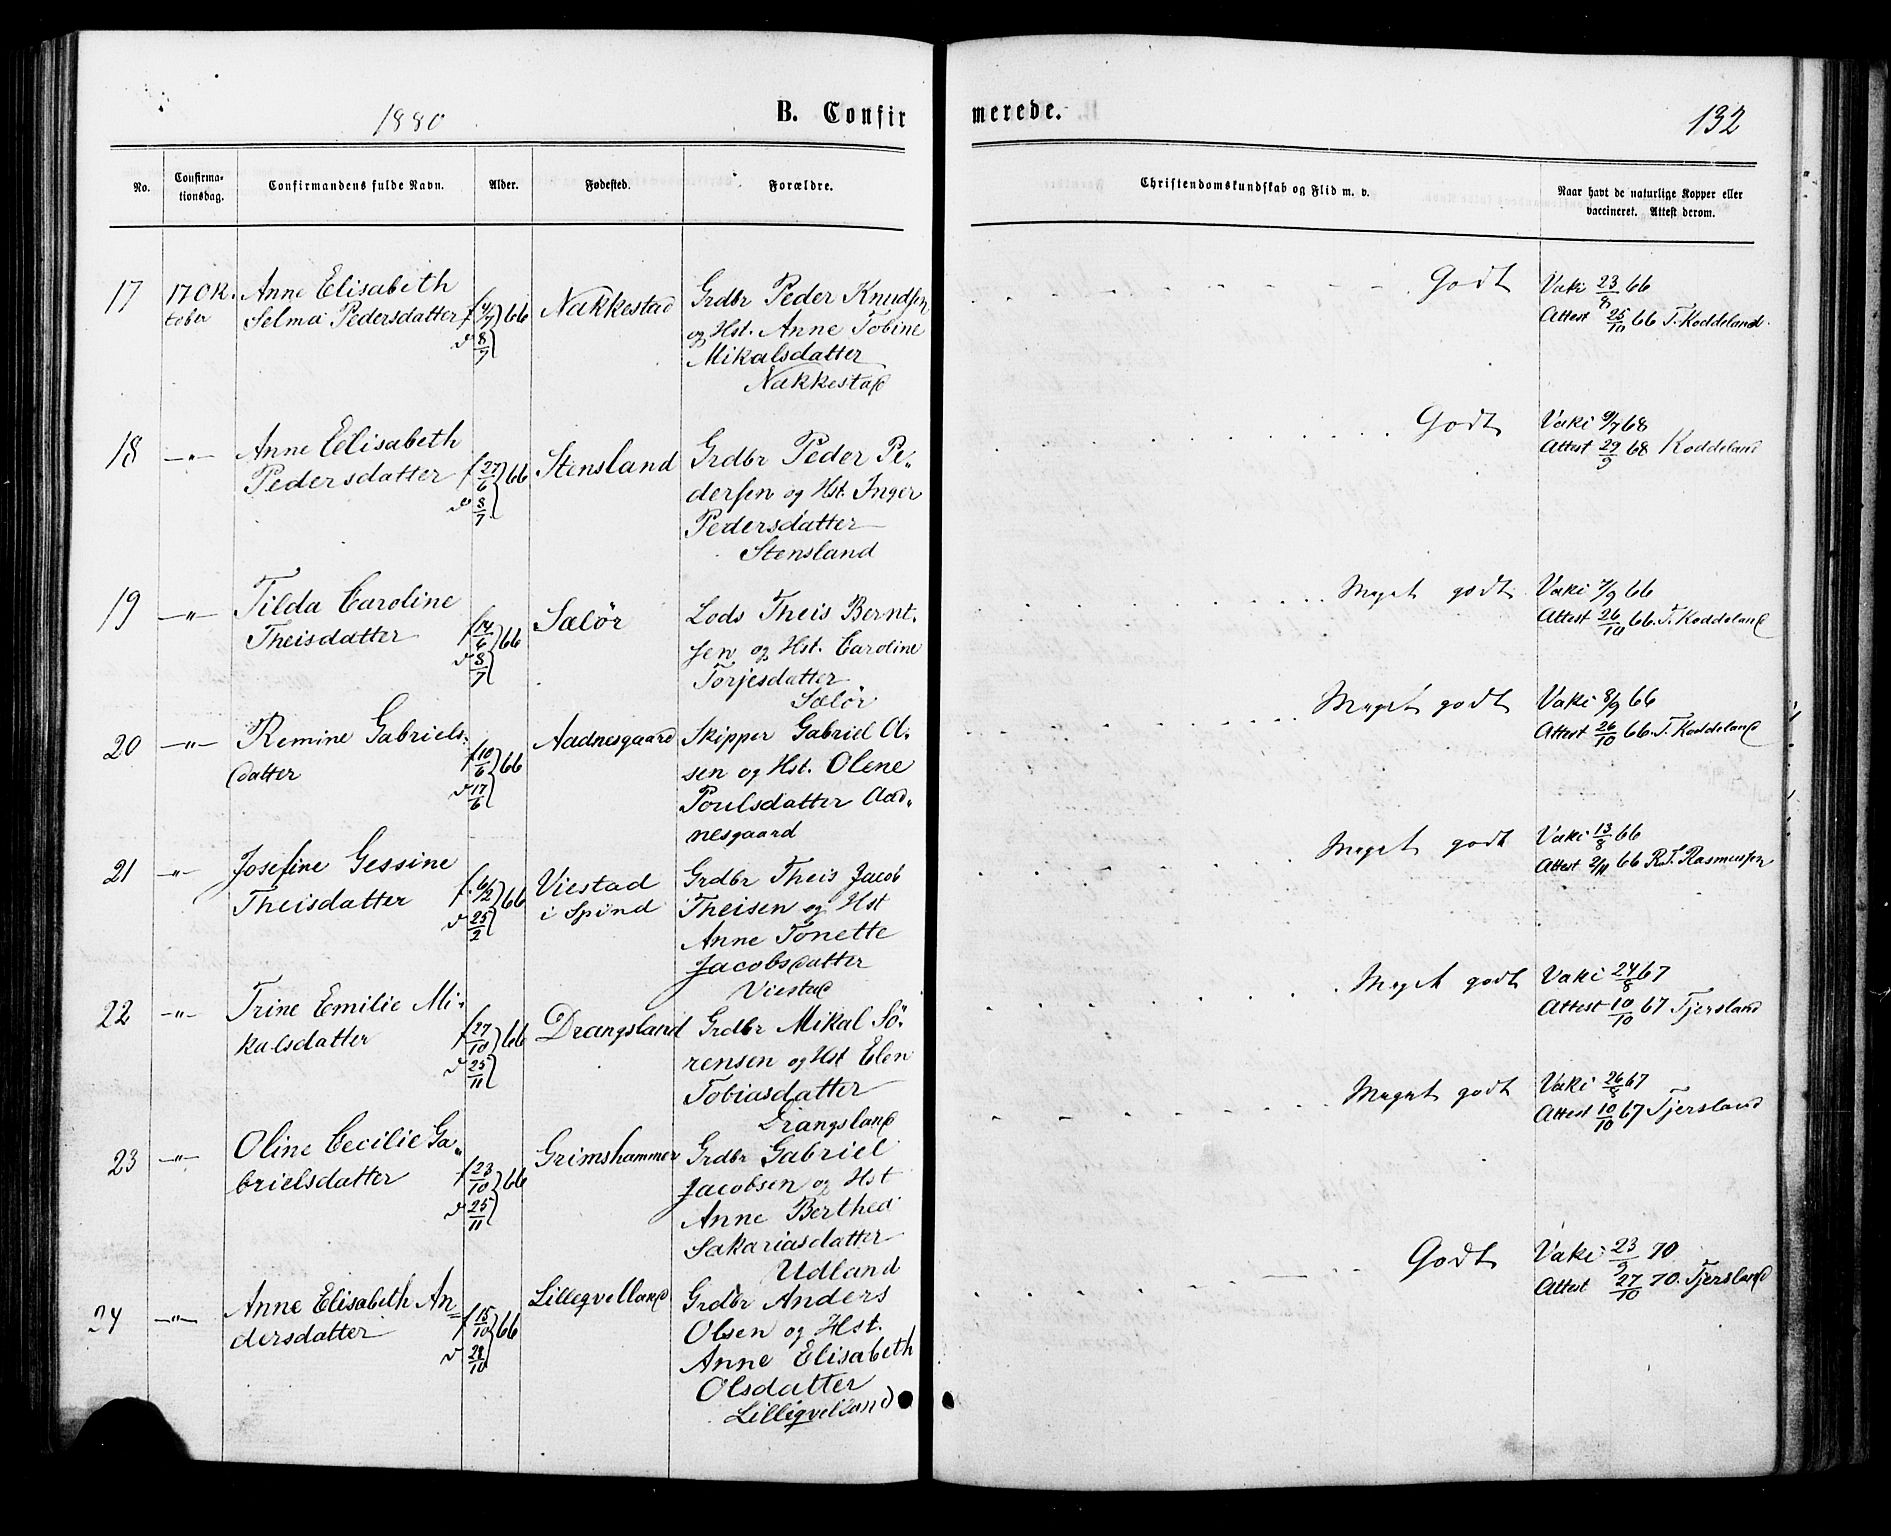 1880
B. Confir
merede.
132
No.
Confirma-
tionsdag.
Confirmandens fulde Navn.
Alder.
Fødested.
Forældre.
Christendomskundskab og Flid m. v.
Naar havt de naturlige Kopper eller
vaccineret. Attest derom.
17
17 Ok.
tober
Anne Elisabeth
Selma Pedersdatter
f 4/7 66
d 8/7
Nakkestad
Grdbr Peder Knudsen
og Hst. Anne Tobine
Mikalsdatter
Nakkestad
Godt
Vaki 23/8 66
Attest 25/10 66 T. Koddeland.
18
—"—
Anne Elisabeth
Pedersdatter
f 27/6 66
d 8/7
Stensland
Grdbr Peder Pe-
dersen og Hst. Inger
Pedersdatter
Stensland
Godt
Vaki 9/7 68
Attest 29/9 68 Koddeland
19
—"—
Tilda Caroline
Theisdatter
f 14/6 66
d 8/7
Sælör
Lods Theis Bernt-
sen og Hst. Caroline
Torjesdatter
Sælör
Meget godt
Vaki 7/9 66
Attest 26/10 66. T. Koddeland
20
—"—
Remine Gabriels-
datter
f 10/6 66
d 17/6
Aadnesgaard
Skipper Gabriel Ol-
sen og Hst. Olene
Poulsdatter Aad-
nesgaard
Meget godt
Vaki 8/9 66
Attest 26/10 66. T. Koddeland
21
—"—
Josefine Gessine
Theisdatter
f. 6/2 66
d 25/2
Viestad
i Spind
Grdbr Theis Jacob
Theisen og Hst
Anne Tonette
Jacobsdatter
Viestad
Meget godt
Vaki 13/8 66
Attest 2/11 66 R. T. Rasmussen
22
—"—
Trine Emilie Mi-
kalsdatter
f 27/10 66
d 25/11
Drangsland
Grdbr Mikal Sö-
rensen og Hst Elen
Tobiasdatter
Drangsland
Meget godt
Vaki 24/8 67
Attest 10/10 67 Tjersland
23
—"—
Oline Cecilie Ga-
brielsdatter
f 23/10 66
d 25/11
Grimshammer
Grdbr Gabriel
Jacobsen og Hst
Anne Berthea
Sakariasdatter
Udland
Meget godt
Vaki 26/8 67
Attest 10/10 67 Tjersland
24
—"—
Anne Elisabeth An-
dersdatter
f 15/10 66
d 28/10
Lilleqvelland
Grdbr Anders
Olsen og Hst.
Anne Elisabeth
Olsdatter
Lilleqvelland
Godt
Vaki 23/9 70
Attest 27/10 70. Tjersland